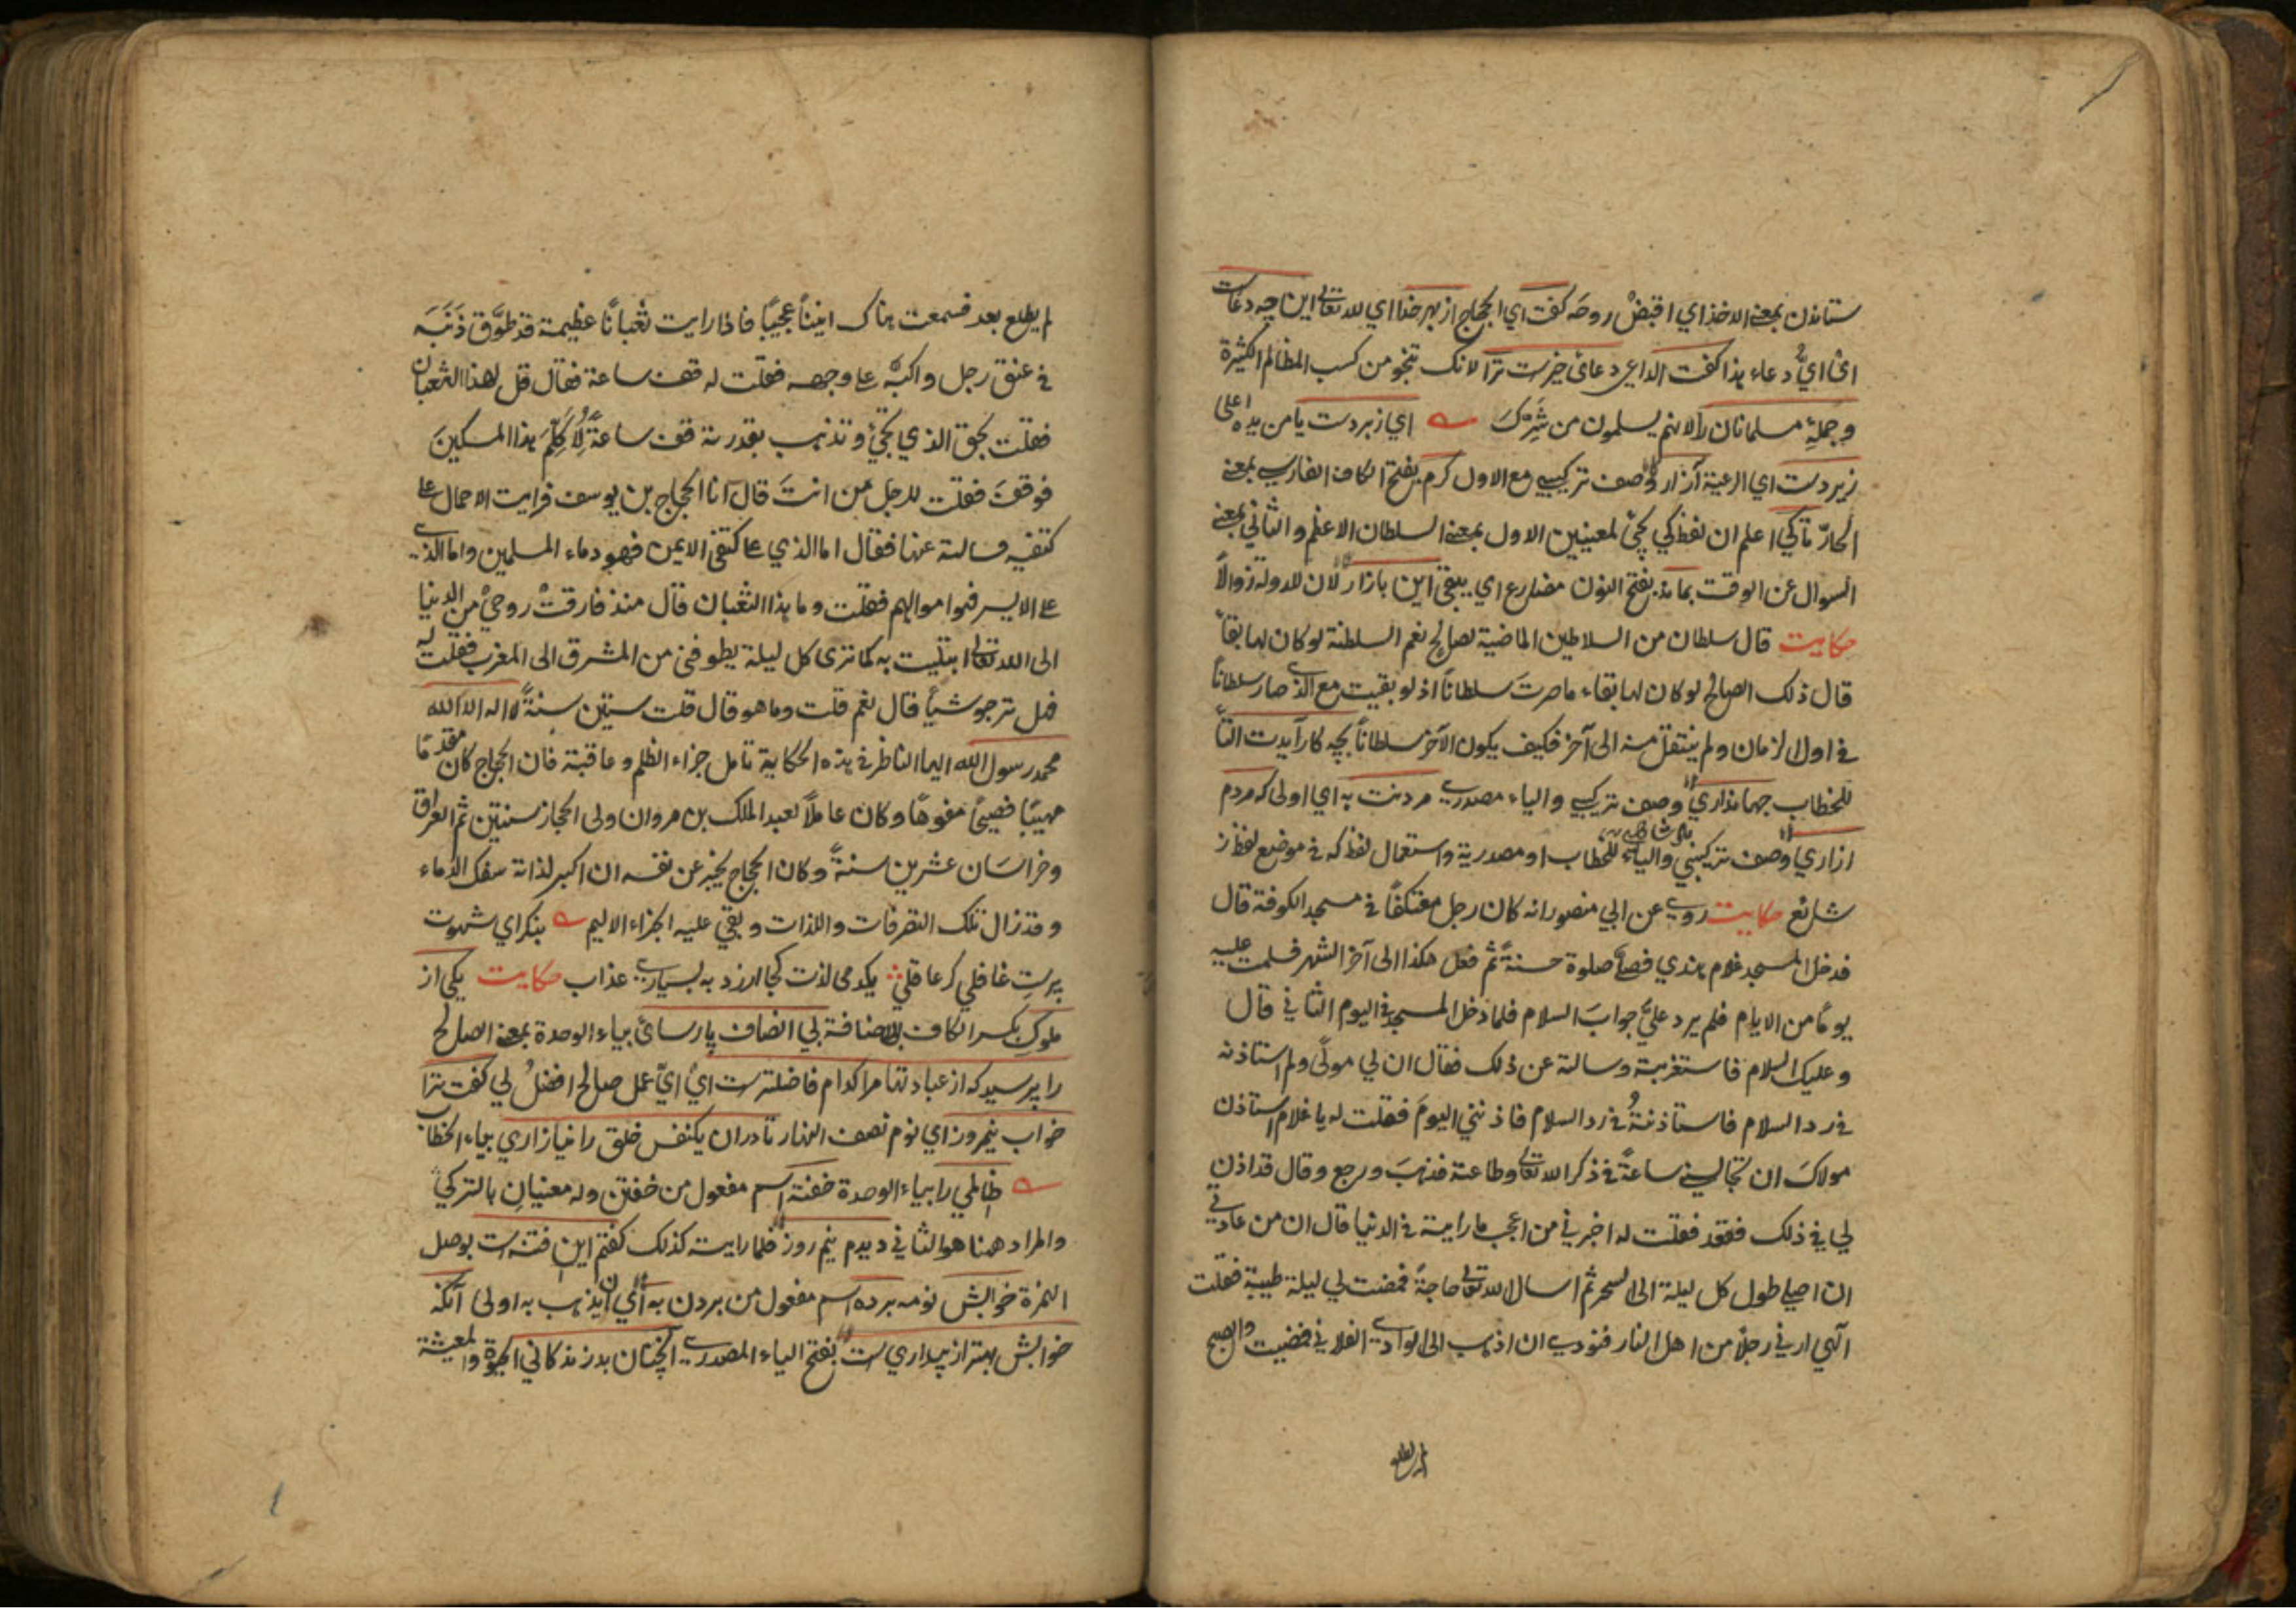 ستاندن بمعنى الاخذ اي اقبض روحه كفت اي الحجاج از بهر خدا اي لله تعالى اين چه دعاست
اى ايُّ دعاء هذا كفت الداعى دعائ خيرست ترا لانك تنجو من كسب المظالم الكثيرة
وجملهٔ مسلمانان را لانهم يسلمون من شرّك اي زبردست يا من يده اعلى
زيردست اي الرعية آزار وصف تركيبي مع الاول كرم بفتح الكاف الفارسي بمعنى
الحارّ تاكي اعلم ان لفظ كي يجئ لمعنيين الاول بمعنى السلطان الاعظم والثاني بمعنى
السوال عن الوقت بماند بفتح النون مضارع اي يبقى اين بازار لان للدولة زوالاً
حكايت قال سلطان من السلاطين الماضية لصالح نعم السلطنة لو كان لها بقاءً
قال ذلك الصالح لو كان لها بقاء ما صرتَ سلطاناً اذ لو بقيت مع الذي صار سلطاناً
في اول الزمان ولم ينتقل منه الى آخر فكيف يكون الآخر سلطاناً بچه كار آيدت التاء
للخطاب جهانداري وصف تركيبي والياء مصدري مردنت به اي اولى كه مردم
ازاري وصف تركيبي والياء للخطاب او مصدرية واستعمال لفظ كه في موضع لفظ از
شائع حكايت روي عن ابي منصور انه كان رجل معتكفاً في مسجد الكوفة قال
فدخل المسجد غلام هندي فصلى صلوة حسنةً ثم فعل هكذا الى آخر الشهر فسلمت عليه
يوماً من الايام فلم يرد عليَّ جوابَ السلام فلما دخل المسجد في اليوم الثاني قال
وعليك السلام فاستغربته وسالته عن ذلك فقال ان لي مولًى ولم استاذنه
في رد السلام فاستاذنتُهُ في رد السلام فاذنني اليومَ فقلت له يا غلام استاذن
مولاكَ ان تجالسني ساعةً في ذكر الله تعالى وطاعته فذهبَ ورجع وقال قد اذن
لي في ذلك فقعد فقلت له اخبرني من اعجب ما رايته في الدنيا قال ان من عادتي
ان اصلي طول كل ليلة الى السحر ثم اسال الله تعالى حاجةً فمضت لي ليلة طيبة فقلت
الهي ارني رجلاً من اهل النار فنودي ان اذهب الى الوادي الفلاني فمضيت والصبح
لم يطلع
لم يطلع بعد فسمعت هناك انيناً عجيباً فاذا رايت ثعباناً عظيمة قد طوَّق ذَنَبَه
في عنق رجل واكبّه على وجهه فقلت له قف ساعة فقال قل لهذا الثعبان
فقلت بحق الذي تجئ وتذهب بقدرته قف ساعةً لأُكَلِّمَ هذا المسكينَ
فوقفَ فقلت للرجل من انتَ قال انا الحجاج بن يوسف فرايت الاحمال على
كتفيه فسالته عنها فقال اما الذي على كتفى الايمن فهو دماء المسلمين واما الذي
على الايسر فهو اموالهم فقلت وما هذا الثعبان قال منذ فارقتْ روحيْ من الدنيا
الى الله تعالى ابتليت به كما ترى كل ليلة يطوفنى من المشرق الى المغرب فقلت له
فهل ترجو شيأً قال نعم قلت وما هو قال قلت ستين سنةً لا اله الا الله
محمد رسول الله ايها الناظر في هذه الحكاية تامل جزاء الظلم وعاقبته فان الحجاج كان مقدمًا
مهيبًا فصيحًا مفوهًا وكان عاملاً لعبد الملك بن مروان ولى الحجاز سنتين ثم العراق
وخراسان عشرين سنةً وكان الحجاج يخبر عن نفسه ان اكبر لذاته سفك الدماء
وقد زال تلك التصرفات واللذات وبقي عليه الجزاء الاليم بنكر اي شهوت
پرستِ غافلي كر عاقلي يكدمى لذت كجا ارزد به بسياري عذاب حكايت يكى از
ملوكِ بكسر الكاف للاضافة بي انصاف پارسائ بياء الوحدة بمعنى الصالح
را پرسيد كه از عبادتها مرا كدام فاضلترست اى ايُّ عمل صالح افضلُ لي كفت ترا
خواب نيمروز اي نوم نصف النهار تا دران يكنفس خلق را نيازاري بياء الخطاب
ظالمي را بياء الوحدة خفته اسم مفعول من خفتن وله معنيانِ بالتركي
والمراد ههنا هو الثاني ديدم نيم روز فلما رايته كذلك كفتم اين فتنه است بوصل
الهمزة خوابش نومه برده اسم مفعول من بردن به اي ان يذهب به اولى آنكه
خوابش بهتر از بيداري ست بفتح الياء المصدري آنچنان بد زندكاني الحيوة والمعيشة